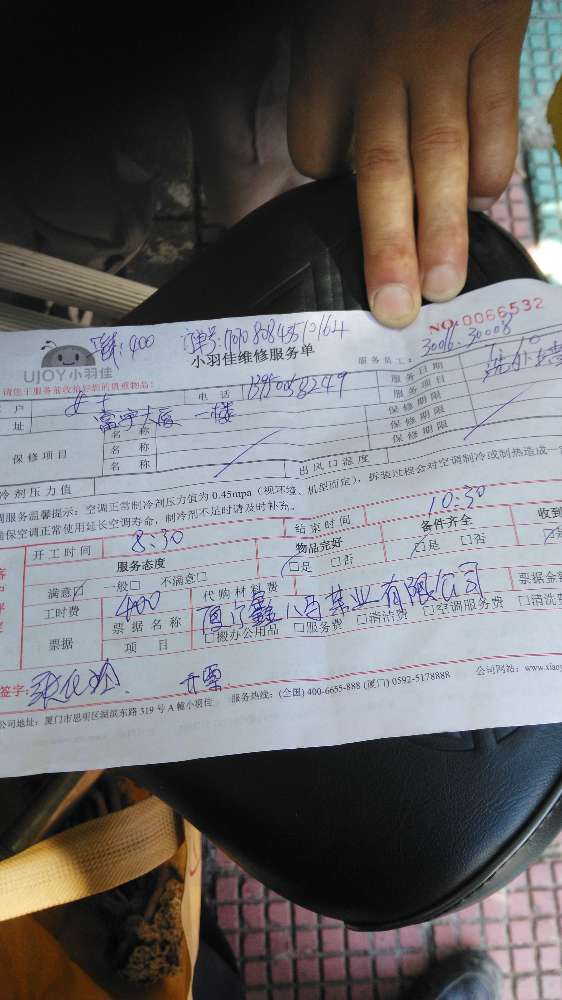 400 订单号:
NO:0066532
UJOY小羽佳
小羽佳维修服务单
服务员工: 3006. 30008
请您于服务前收拾好您的贵重物品!
户 女士 电话 服务日期
址 富宇大厦 一楼 服务项目
保修项目 名称 保修期限
名称 保修期限
名称 保修期限
冷剂压力值 出风口温度
调服务温馨提示:空调正常制冷剂压力值为0.45mpa(视环境、机型而定),拆装过程会对空调制冷或制热造成一
确保空调正常使用延长空调寿命,制冷剂不足时请及时补充。
开工时间 8:30 结束时间 10:30
服务态度 物品完好 备件齐全 收到
满意 一般 不满意 是 否 是 否
工时费 400 代购材料费 票据金
票据 票据名称 八马茶业有限公司
项目 搬办公用品 服务费 清洁费 空调服务费 清洗费
签字: 开票
公司地址:厦门市思明区湖滨东路319号A幢小羽佳 服务热线:(全国)400-6655-888 (厦门)0592-5178888 公司网站:www.xiaoy